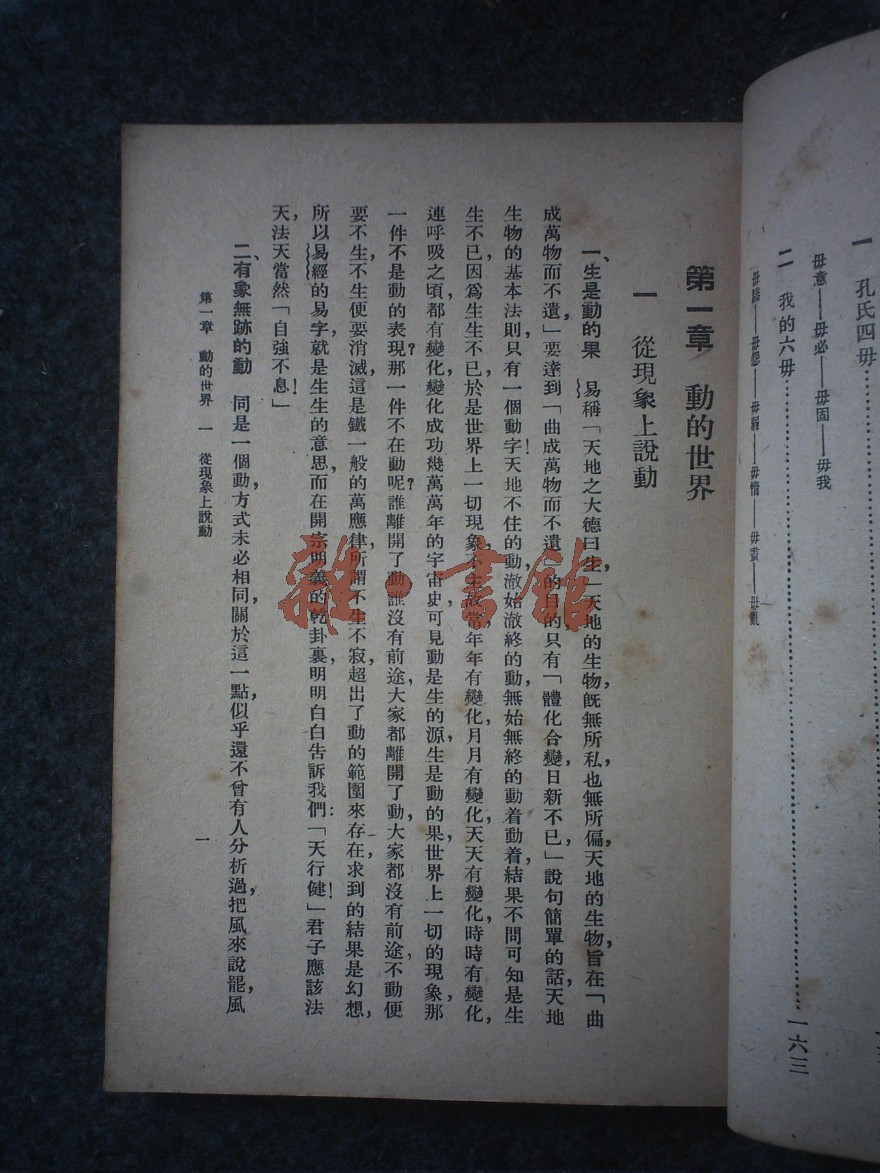 一 孔氏四毋……………………
毋意——毋必——毋固——毋我
二 我的六毋……………………一六三
毋驕——毋怨——毋弱——毋惰——毋畫——毋亂
第一章 動的世界
一 從現象上說動
一、生是動的果 易稱「天地之大德曰生,」天地的生物,既無所私,也無所偏,天地的生物,旨在「曲
成萬物而不遺,」要達到「曲成萬物而不遺」的目的,只有「體化合變,日新不已,」說句簡單的話,天地
生物的基本法則,只有一個動字!天地不住的動,澈始澈終的動,無始無終的動着,動着,結果不問可知是生
生不已,因爲生生不已,於是世界上一切現象,不主故常,年年有變化,月月有變化,天天有變化,時時有變化,
連呼吸之頃,都有變化,變化成功幾萬萬年的宇宙史,可見動是生的源,生是動的果,世界上一切的現象,那
一件不是動的表現?那一件不在動呢?誰離開了動,誰沒有前途,大家都離開了動,大家都沒有前途,不動便
要不生,不生便要消滅,這是鐵一般的萬應律,所謂不生不寂,超出了動的範圍來存在,求到的結果是幻想,
所以易經的易字,就是生生的意思,而在開宗明義的乾卦裏,明明白白告訴我們:「天行健!」君子應該法
天,法天當然「自強不息!」
二、有象無跡的動 同是一個動,方式未必相同,關於這一點,似乎還不曾有人分析過,把風來說罷,風
第一章 動的世界 一 從現象上說動
一
雜·書館